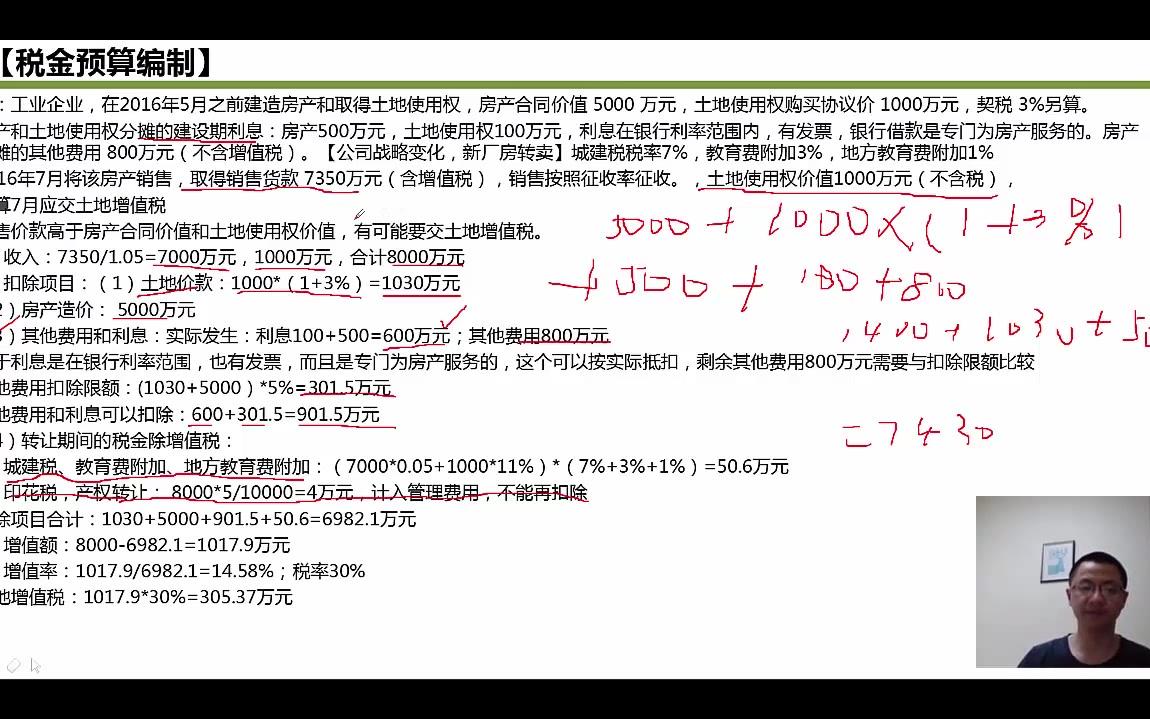 【税金预算编制】
：工业企业，在2016年5月之前建造房产和取得土地使用权，房产合同价值 5000 万元，土地使用权购买协议价 1000万元，契税 3%另算。
产和土地使用权分摊的建设期利息：房产500万元，土地使用权100万元，利息在银行利率范围内，有发票，银行借款是专门为房产服务的。房产
摊的其他费用 800万元（不含增值税）。【公司战略变化，新厂房转卖】城建税税率7%，教育费附加3%，地方教育费附加1%
16年7月将该房产销售，取得销售货款 7350万元（含增值税），销售按照征收率征收。，土地使用权价值1000万元（不含税），
算7月应交土地增值税
售价款高于房产合同价值和土地使用权价值，有可能要交土地增值税。
收入：7350/1.05=7000万元，1000万元，合计8000万元
扣除项目：（1）土地价款：1000*（1+3%）=1030万元
2）房产造价： 5000万元
3）其他费用和利息：实际发生：利息100+500=600万元；其他费用800万元
于利息是在银行利率范围，也有发票，而且是专门为房产服务的，这个可以按实际抵扣，剩余其他费用800万元需要与扣除限额比较
他费用扣除限额：(1030+5000）*5%=301.5万元
他费用和利息可以扣除：600+301.5=901.5万元
4）转让期间的税金除增值税：
城建税、教育费附加、地方教育费附加：（7000*0.05+1000*11%）*（7%+3%+1%）=50.6万元
印花税，产权转让： 8000*5/10000=4万元，计入管理费用，不能再扣除
除项目合计：1030+5000+901.5+50.6=6982.1万元
增值额：8000-6982.1=1017.9万元
增值率：1017.9/6982.1=14.58%；税率30%
地增值税：1017.9*30%=305.37万元
5000+1000×(1+3%)
+500+100+800
1400+1030+50
=7430